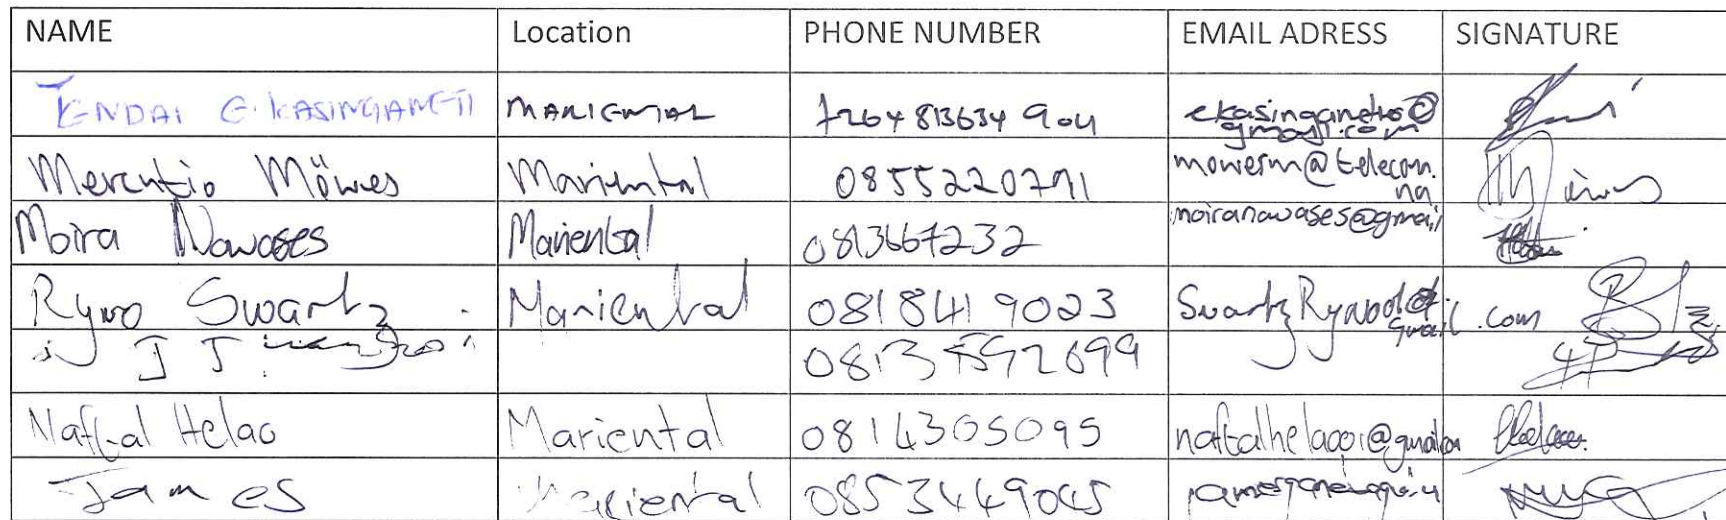 NAME Location PHONE NUMBER EMAIL ADRESS SIGNATURE
TENDAI E. KASINGANETI MARIENTAL +264 813634 904 ekasinganeti@
gmail.com
Mercutio Möwes Mariental 0855220791 mowesm@telecom.
na
Moira Nawases Mariental 0813667232 moiranawases@gmail
Ryno Swartz Mariental 0818419023 SwartzRyno
gmail.com
J J 0813592699
Naftal Helao Mariental 0814305095 naftalhelao01@gmail.com
James Mariental 0853449045